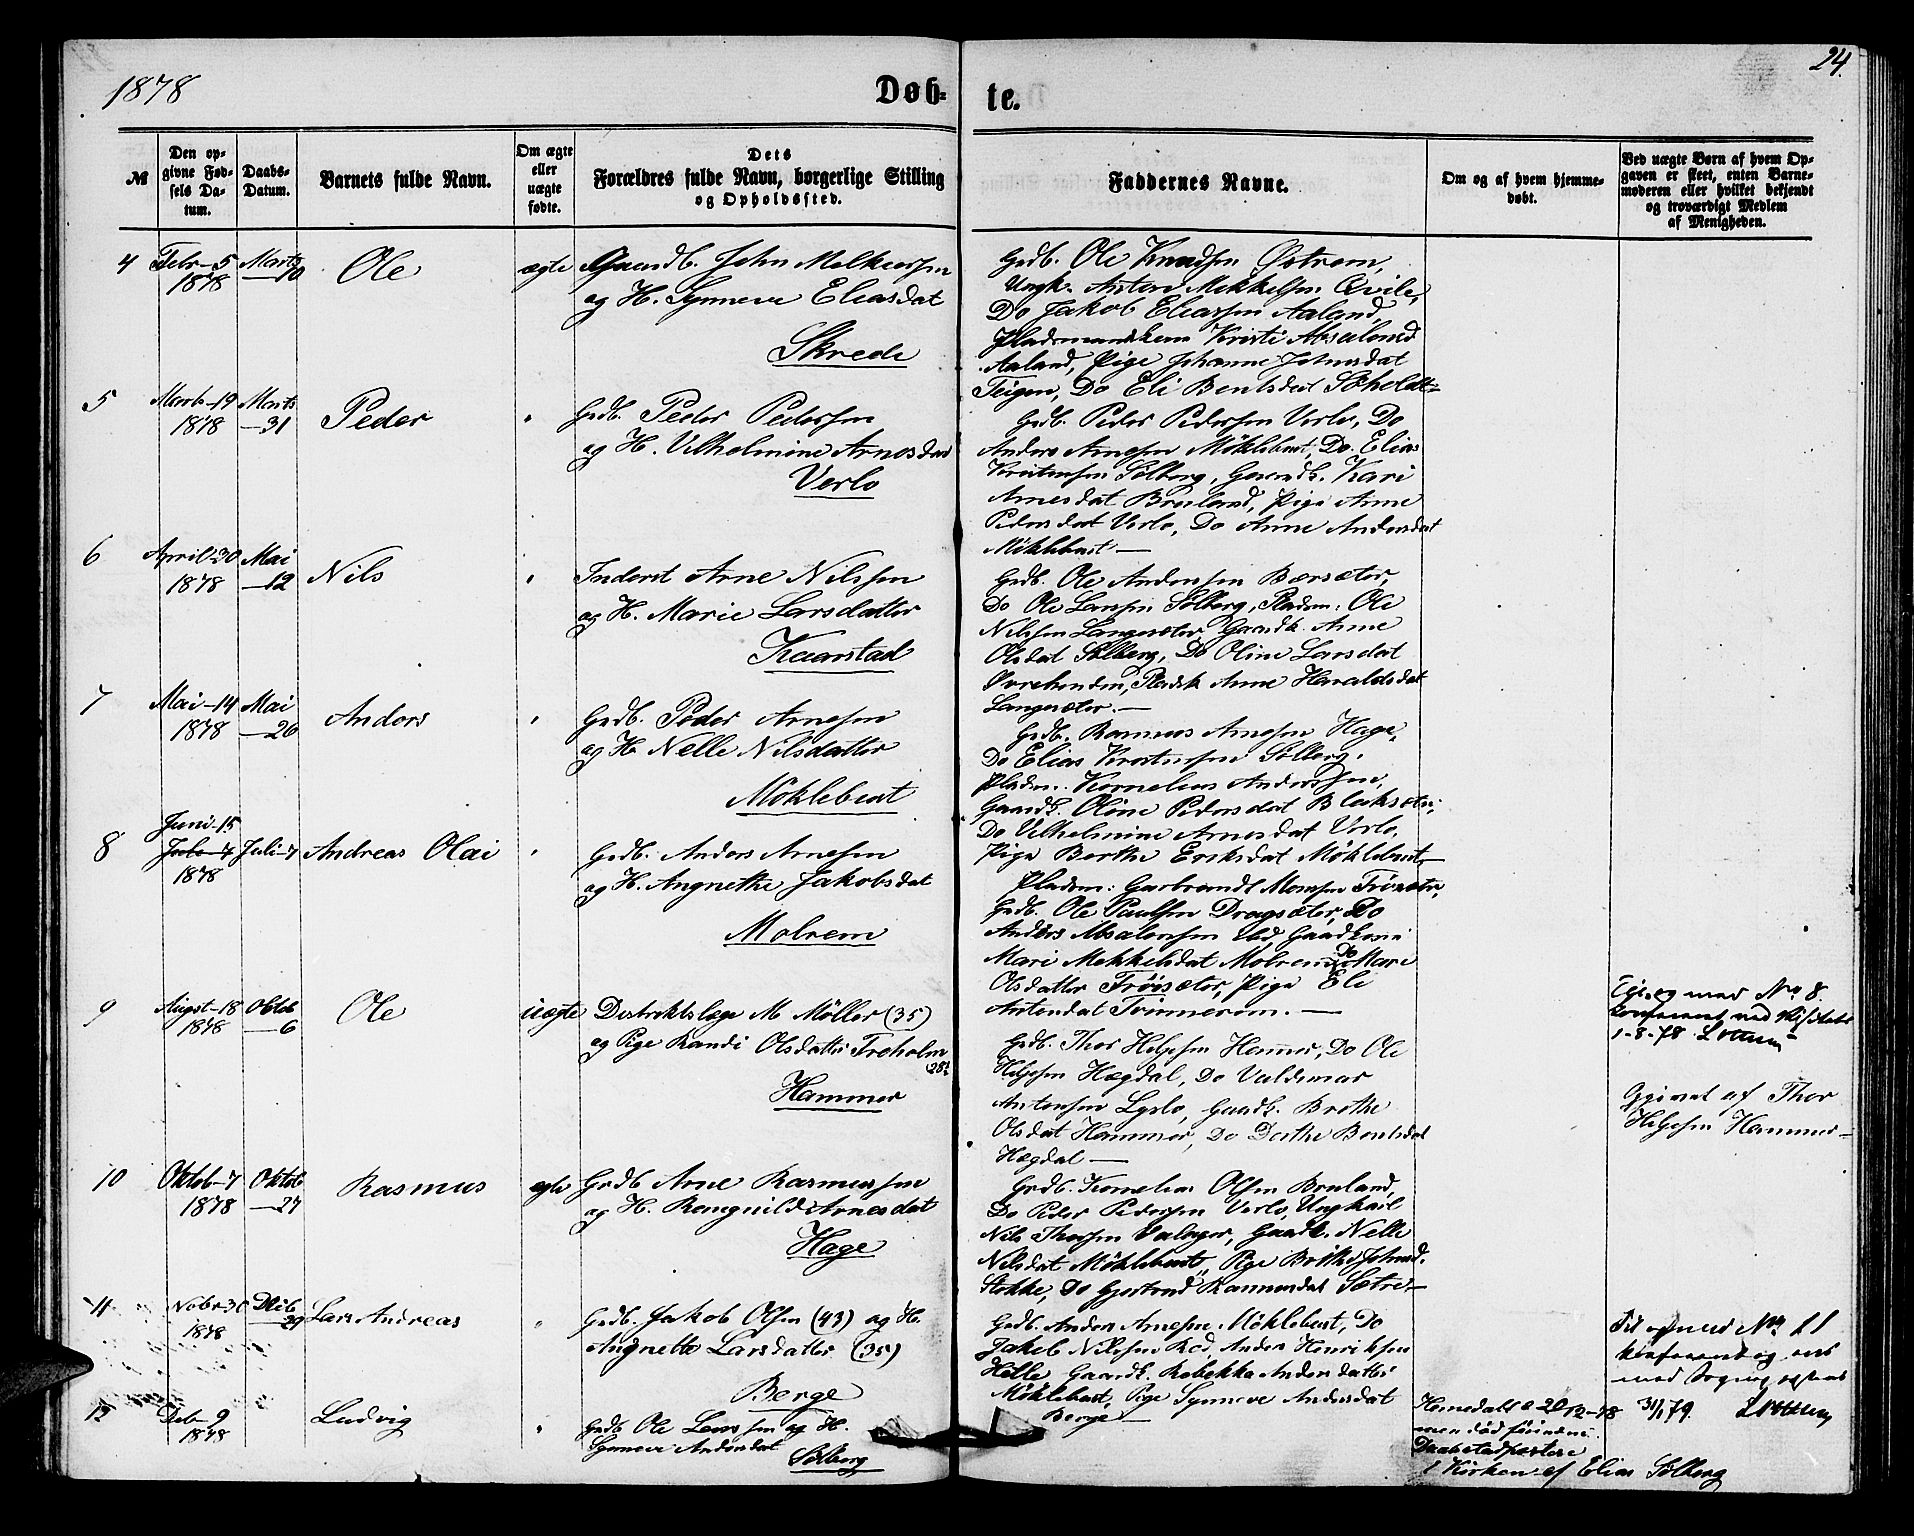 1878
Døb-
te.
24.
№
Den op-
givne Fød-
sels Da-
tum.
Daabs-
Datum.
Barnets fulde Navn.
Om ægte
eller
uægte
fødte.
Dets
Forældres fulde Navn, borgerlige Stilling
og Opholdssted.
Faddernes Navne.
Om og af hvem hjemme-
døbt.
Ved uægte Børn af hvem Op-
gaven er skeet, enten Barne-
moderen eller hvilket bekjendt
og troværdigt Medlem
af Menigheden.
4
Febr-5
1878
Marts
-10
Ole
ægte
Gaardb. John Melkersen
og H. Synneve Eliasdat
Skrede
Grdb. Ole Knudsen Østrem,
Ungk. Anton Mekkelsen Qvile,
Do Jakob Eliassen Aaland,
Plademandskone Kristi Absalonsd
Aaland, Pige Johanne Johnsdat
Teigen, Do Eli Bentsdat Søholdt-
5
Marts-19
1878
Marts
-31
Peder
"
Grdb. Peder Pedersen
og H. Vilhelmine Arnesdat
Verlo
Grdb. Peder Pedersen Verlo, Do
Anders Arnesen Møklebust, Do. Elias
Kristensen Solberg, Gaardk. Kari
Arnesdat Bruland, Pige Anne
Pedersdat Verlo, Do Anne Andersdat
Møklebust-
6
April-30
1878
Mai
-12
Nils
"
Inderst Arne Nilssen
og H. Marie Larsdatter
Kaarstad
Grdb. Ole Anderssen Børsæter,
Do Ole Larssen Solberg, Pladsm: Ole
Nilssen Langesæter, Gaardk. Anne
Olsdat Solberg, Do Oline Larsdat
Øvrebenden, Pladsk Anne Haraldsdat
Langesæter.-
7
Mai-14
1878
Mai
-26
Anders
"
Grdb. Peder Arnesen
og H. Nelle Nilsdatter
Møklebust
Grdb. Rasmus Arnesen Hage,
Do Elias Kristensen Solberg,
Pladsm. Kornelius Anderssen,
Gaardk. Oline Pedersdat Bleksæter,
Do Vilhelmine Arnesdat Verlo,
Pige Berthe Eriksdat Møklebust-
8
Juni-15
Juli-7
1878
Juli-7
Andreas Olai
"
Grdb. Anders Arnesen
og H. Angnethe Jakobsdat
Molrem
Pladsm: Garbrandt Monssen Trøsæter,
Grdb. Ole Paulsen Dragsæter, Do
Anders Absalonsen Ebd, Gaardkone
Mari Mekkelsdat Molrem, Do Mari
Olsdatter Trøisæter, Pige Eli
Antondat Trinnerem.-
9
Augst-18
1878
Oktob
-6
Ole
uægte
Distriktslæge M. Møller (35)
og Pige Randi Olsdatter Troholm
(25)
Hammer
Grdb. Thor Helgesen Hammer, Do Ole
Helgesen Hægdal, Do Valdemar
Antonsen Lyslo, Gaardk. Brothe
Olsdat Hammer, Do Dorthe Bentsdat
Hægdal-
og med No 8.
konfereret ved Visitats
1-8-78
Opgivet af Thor
Helgesen Hammer-
10
Oktob-7
1878
Oktob
-27
Rasmus
ægte
Grdb Arne Rasmussen
og H. Rangnild Arnesdat
Hage
Grdb. Kornelius Olsen Bruland,
Do Peder Pedersen Verlo, Ungkarl
Nils Thorsen Valager, Gaardk. Nelle
Nilsdat Møklebust, Pige Brithe Johnsd.
Stokke, Do Gjertrud Rasmusdat Sætre-
11
Nobr-30
1878
Deb
29
Lars Andreas
"
Grdb. Jakob Olsen (43) og H.
Angnethe Larsdatter (35)
Berge
Grdb. Anders Arnesen Møklebust, Do
Jakob Nilssen Rod, Anders Henriksen
Helle, Gaardk. Rebekka Andersdatter
Møklebust, Pige Synneve Andersdat
Berge-
Til og med No 11
konfereret og
31/1 79.
12
Deb-9
1878
Ludvig
"
Grdb Ole Larssen og H.
Synneve Andersdat
Solberg
Hjemedøbt d 20-12-78
men død førend
i Kirken af Elias Solberg